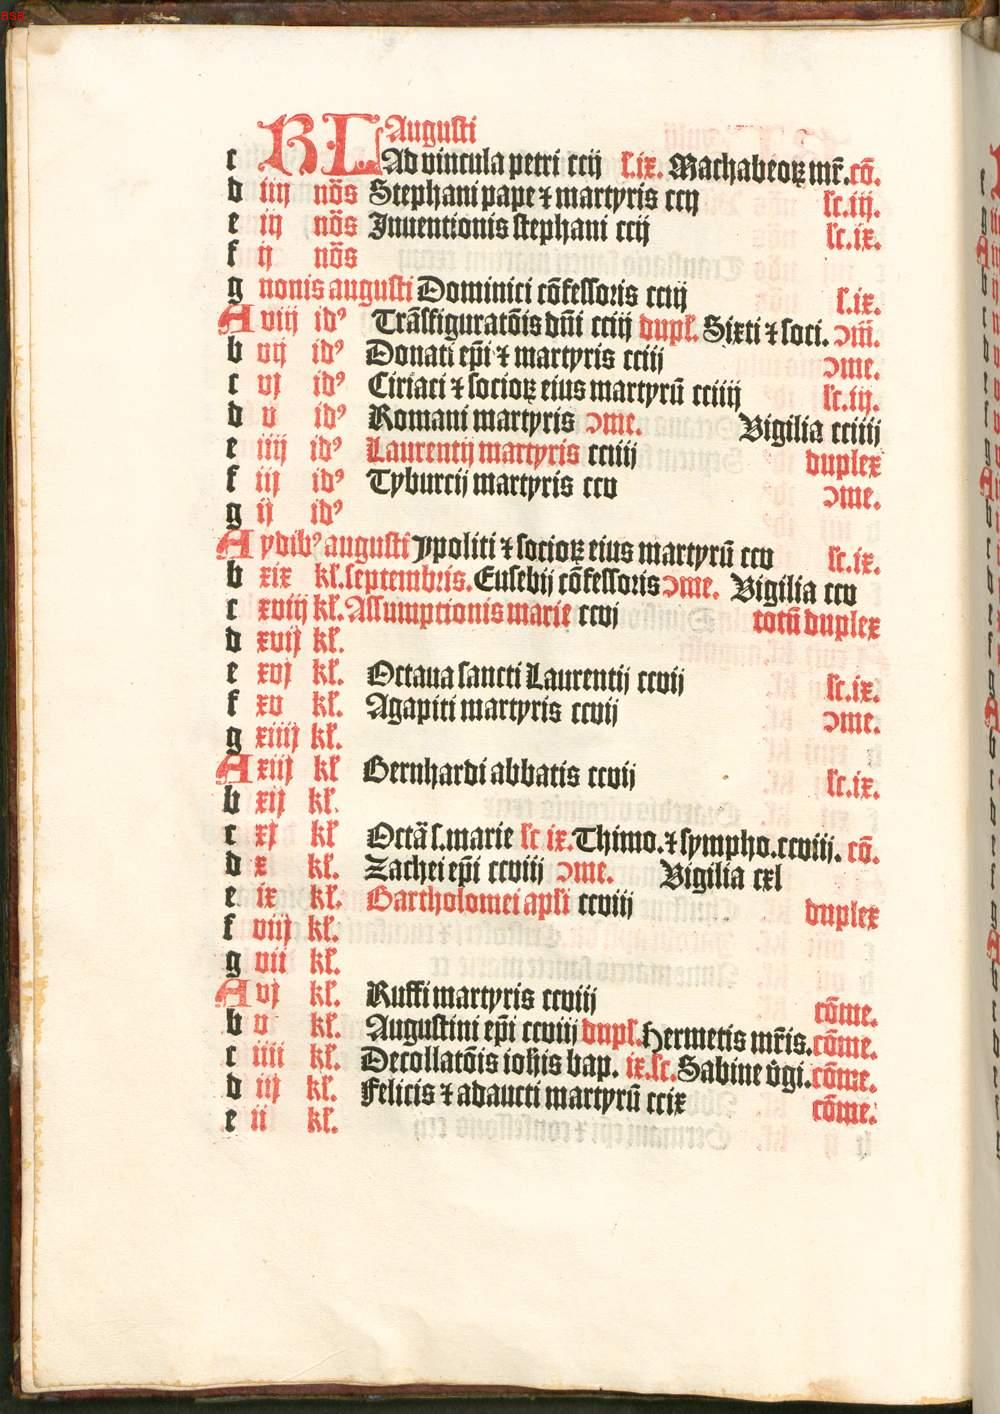 BSB
KL Augusti
c Ad vincula petri ccij ſ.ix. Machabeoꝝ mr̄.cō.
d iiij nōs Stephani pape ⁊ martyris ccij ſc.iij.
e iij nōs Inuentionis ſtephani ccij ſc.ix.
f ij nōs
g nonis auguſti Dominici cōfeſſoris cciij ſ.ix.
A viij idꝰ Trāſfiguratōis dn̄i cciij dupſ. Sixti ⁊ ſoci. ↄm̄.
b vij idꝰ Donati ep̄i ⁊ martyris cciij ↄme.
c vj idꝰ Ciriaci ⁊ ſocioꝝ eius martyrū cciiij ſc.iij.
d v idꝰ Romani martyris ↄme. Vigilia cciiij
e iiij idꝰ Laurentij martyris cciiij duplex
f iij idꝰ Tyburcij martyris ccv ↄme.
g ij idꝰ
A ydibꝰ auguſti Ypoliti ⁊ ſocioꝝ eius martyrū ccv ſc.ix.
b xix kł.ſeptembris. Euſebij cōfeſſoris ↄme. Vigilia ccv
c xviij kł. Aſſumptionis marie ccvj totū duplex
d xvij kł.
e xvj kł. Octaua ſancti Laurentij ccvij ſc.ix.
f xv kł. Agapiti martyris ccvij ↄme.
g xiiij kł.
A xiij kł Bernhardi abbatis ccvij ſc.ix.
b xij kł.
c xj kł Octā ſ.marie ſc ix. Thimo.⁊ ſympho.ccviij. cō.
d x kł. Zachei ep̄i ccviij ↄme. Vigilia cxl
e ix kł. Bartholomei apſi ccviij duplex
f viij kł.
g vij kł.
A vj kł. Ruffi martyris ccviij cōme.
b v kł. Auguſtini ep̄i ccviij dupſ. Hermetis mr̄is.cōme.
c iiij kł. Decollatōis ioh̄is bap. ix.ſc. Sabine v̄gi.cōme.
d iij kł. Felicis ⁊ adaucti martyrū ccix cōme.
e ij kł.